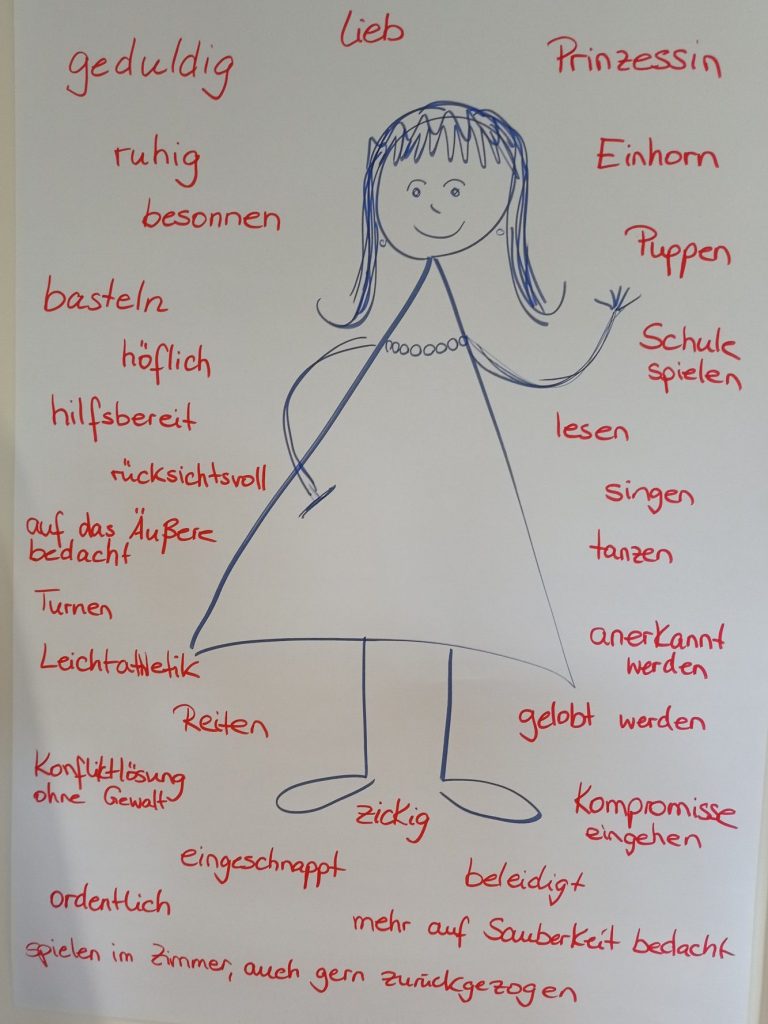 lieb
geduldig
Prinzessin
ruhig
Einhorn
besonnen
Puppen
basteln
höflich
Schule
spielen
hilfsbereit
lesen
rücksichtsvoll
singen
auf das Äußere
bedacht
tanzen
Turnen
anerkannt
werden
Leichtathletik
Reiten
gelobt werden
Konfliktlösung
ohne Gewalt
zickig
Kompromisse
eingehen
eingeschnappt
beleidigt
ordentlich
mehr auf Sauberkeit bedacht
spielen im Zimmer, auch gern zurückgezogen